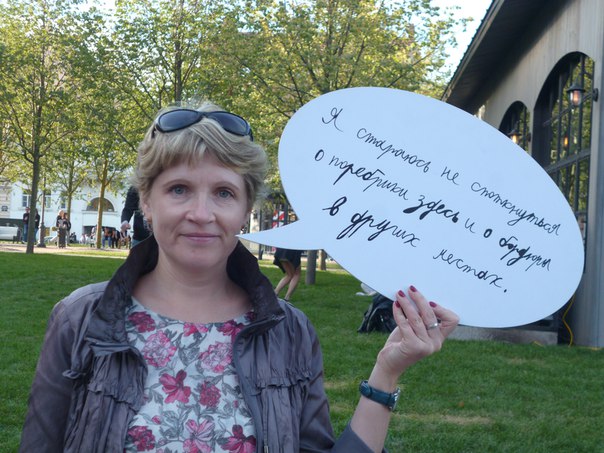 Я стараюсь не споткнуться
о поребрики здесь и о бордюры
в других местах.